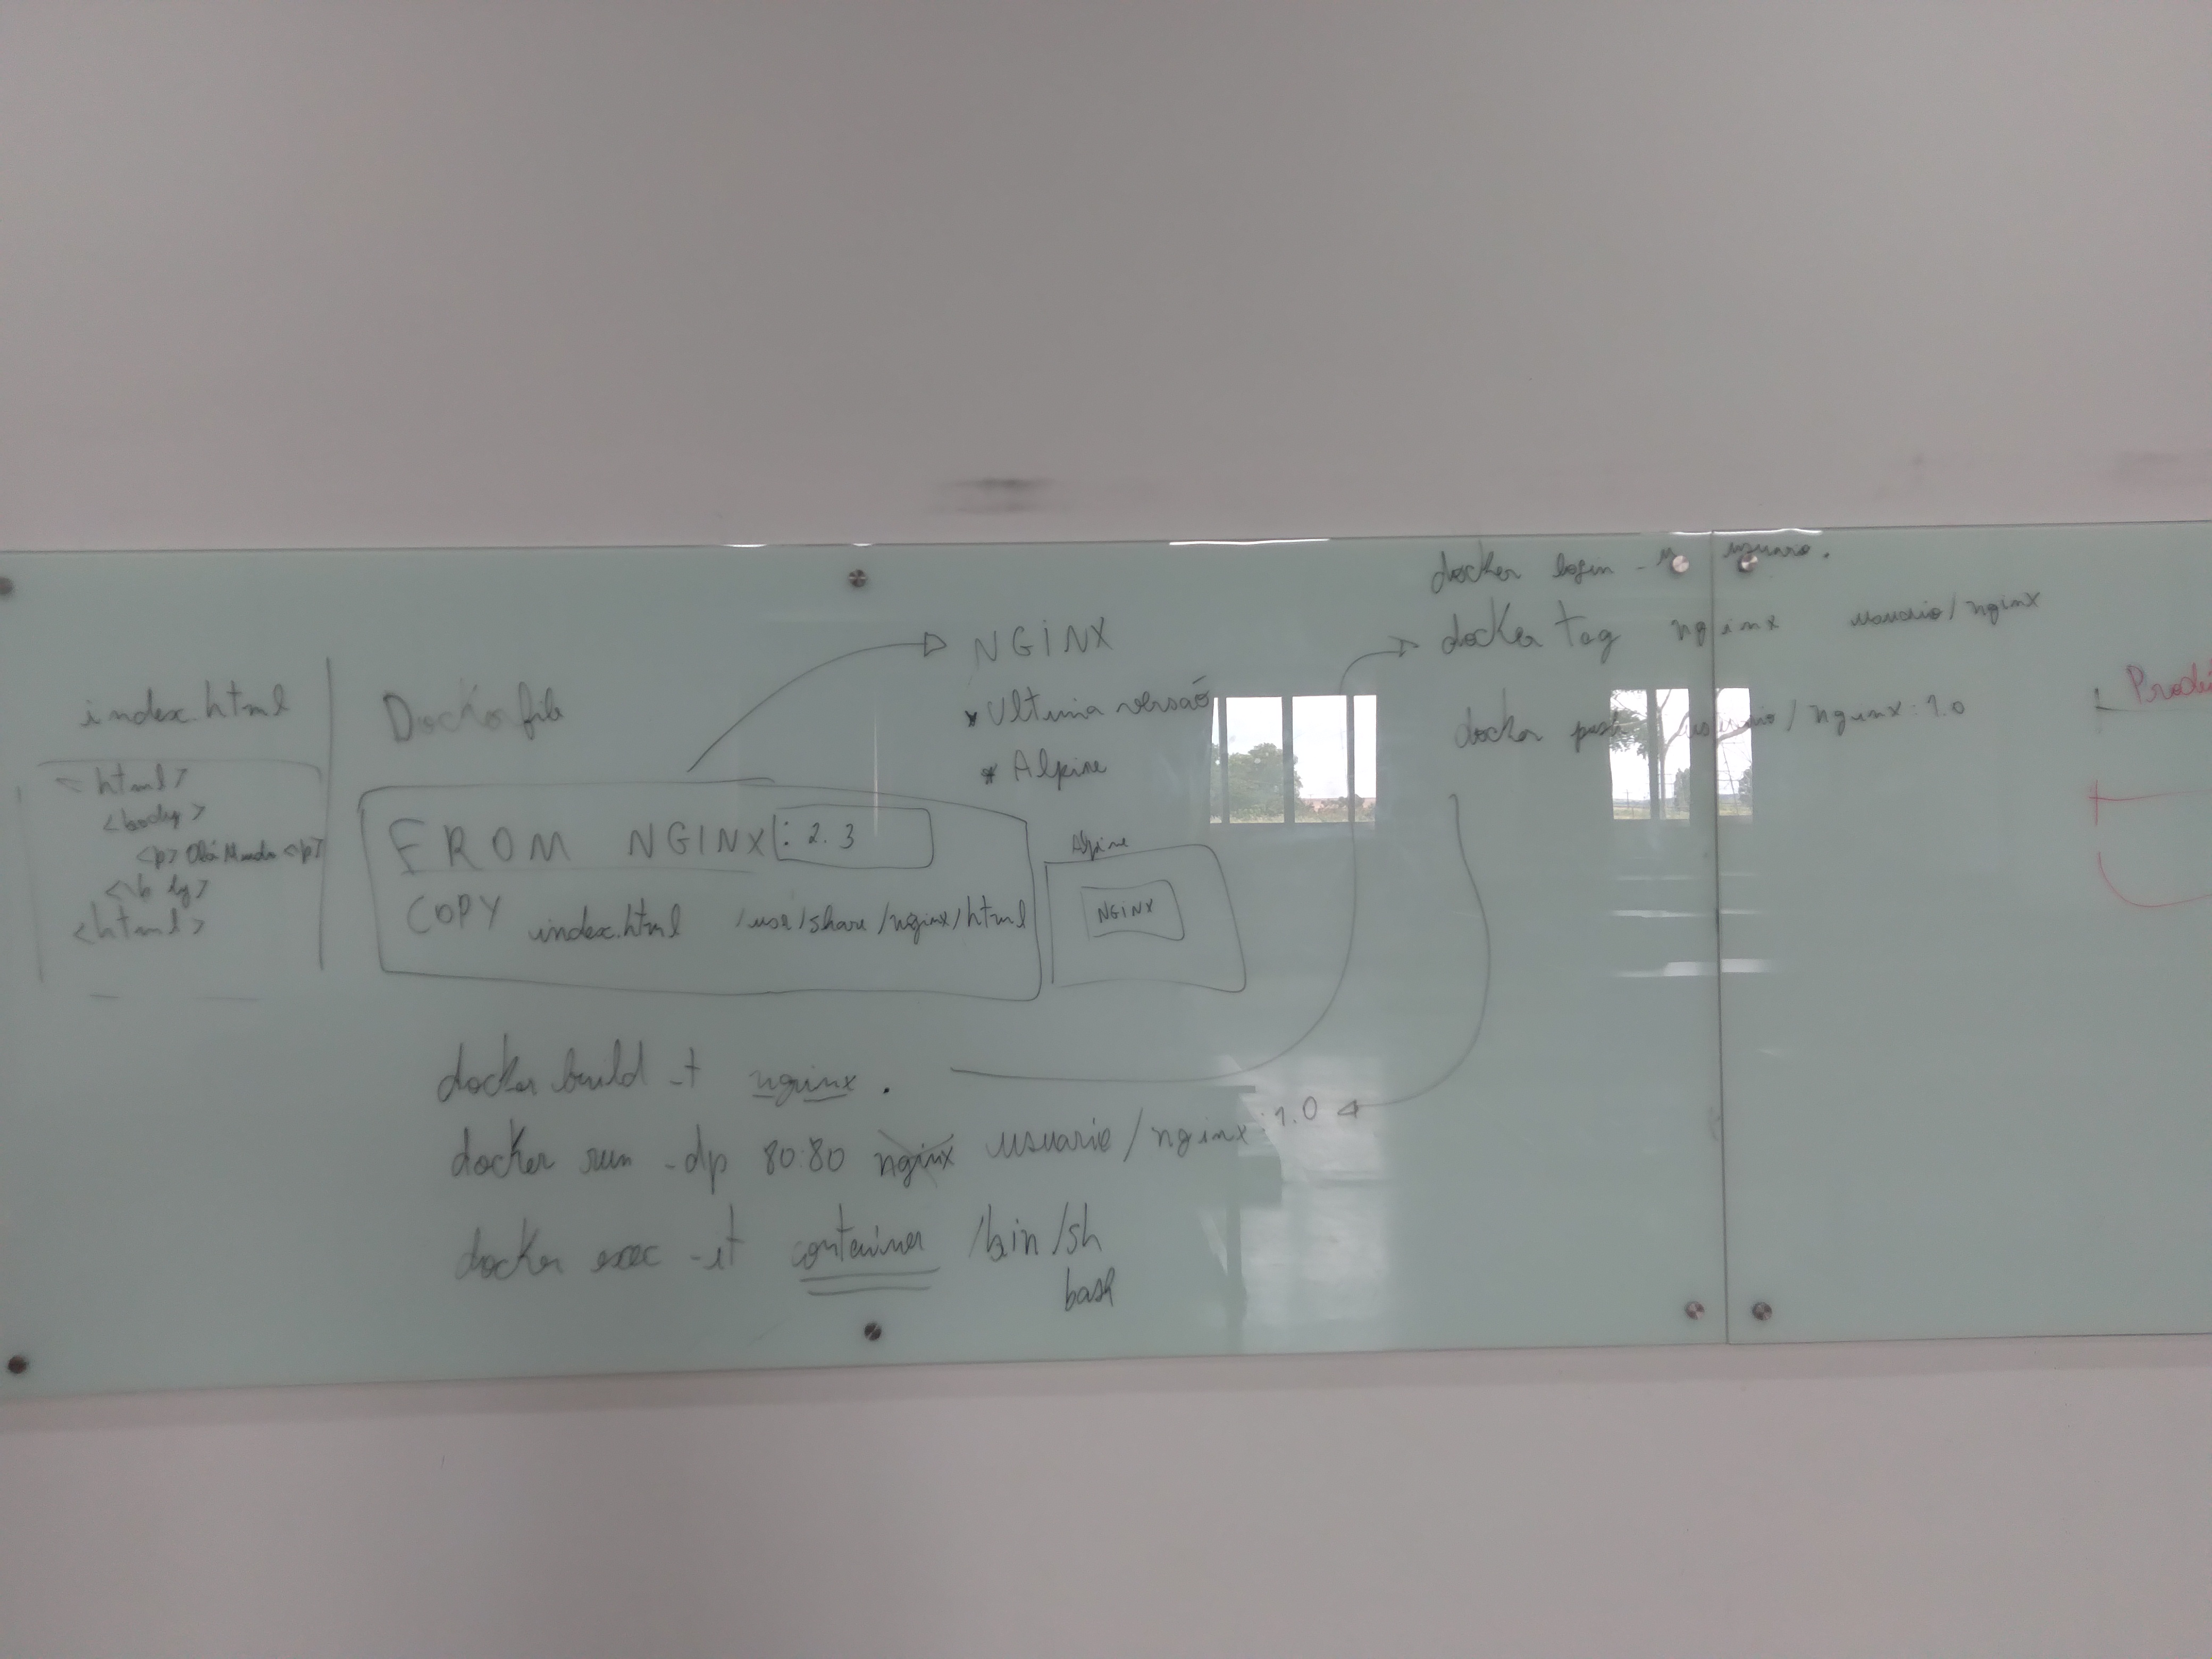 index.html
<html>
<body>
<p> Olá Mundo <p>
<html>
Dockerfile
FROM NGINX : 2.3
COPY index.html /usr/share/nginx/html
NGINX
* Ultima versão
* Alpine
Alpine
NGINX
docker build -t nginx .
docker run -dp 80:80 nginx usuario/nginx:1.0
docker exec -it container /bin/sh
bash
docker login -u usuario.
docker tag nginx usuario/nginx
docker push usuario/nginx:1.0